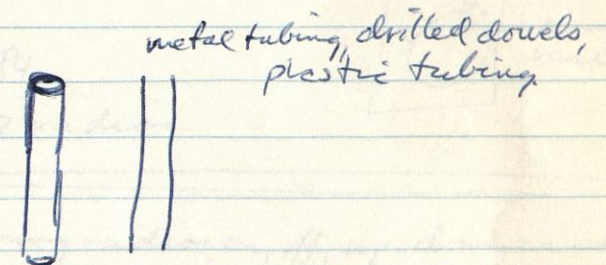 metal tubing, drilled dowels,
plastic tubing.